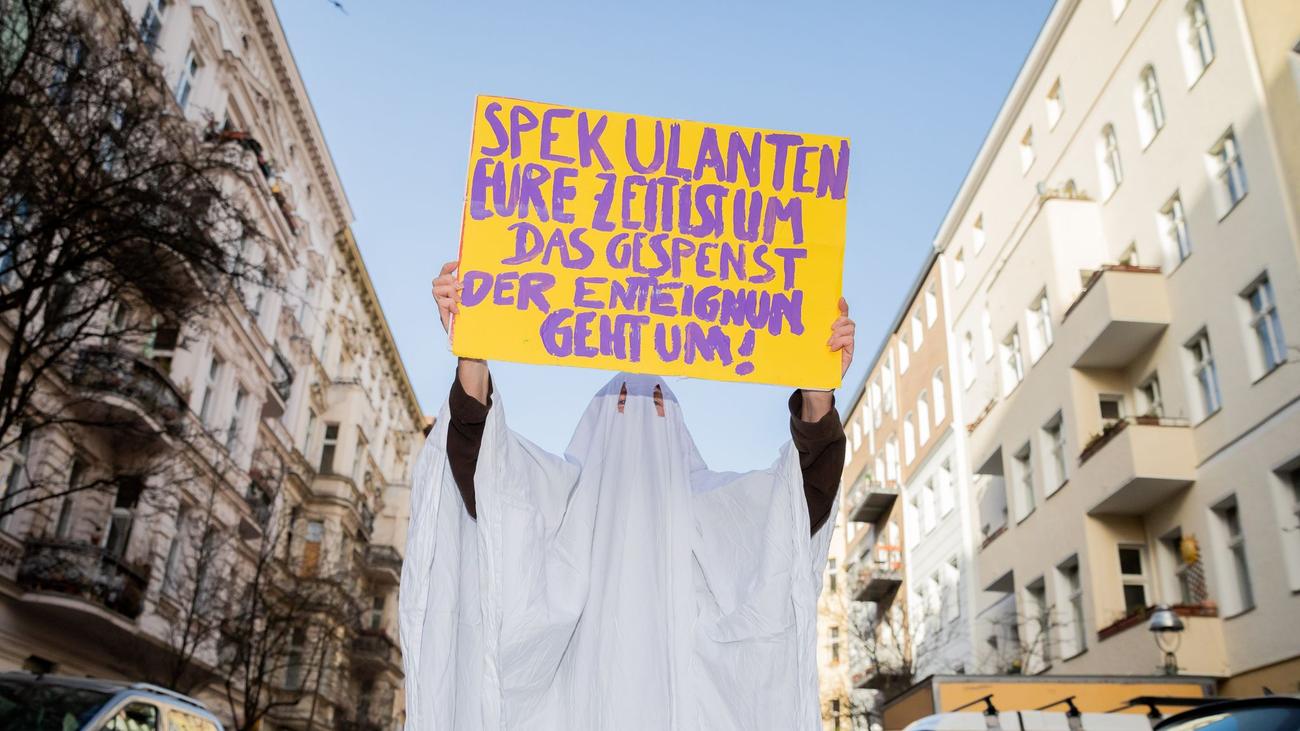 SPEKULANTEN
EURE ZEIT IST UM
DAS GESPENST
DER ENTEIGNUN
GEHT UM!